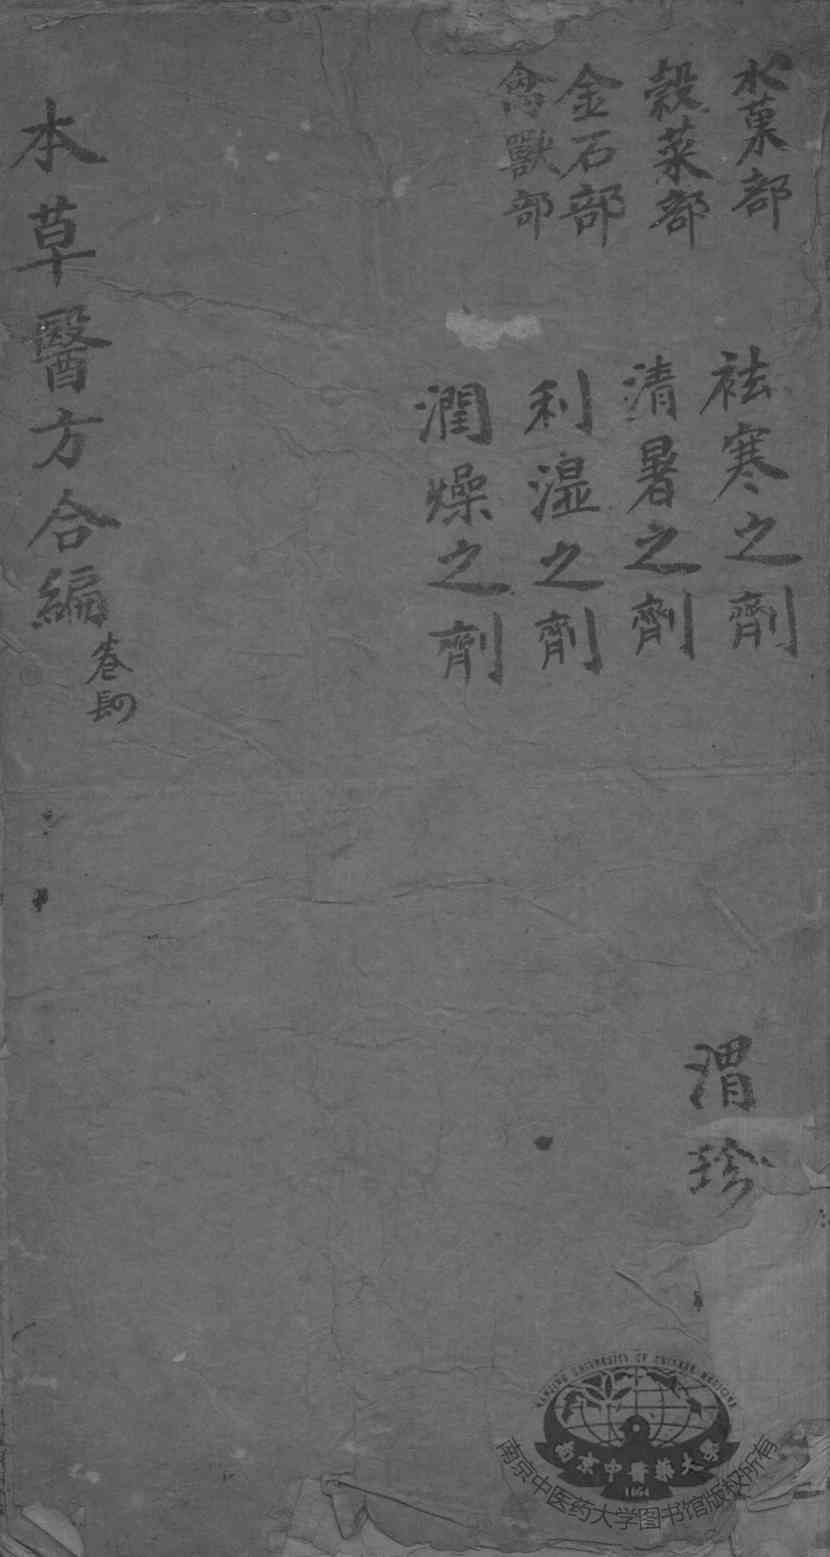 水菓部
穀菜部
金石部
禽獸部
袪寒之劑
清暑之劑
利濕之劑
潤燥之劑
本草醫方合編
卷
渭珍
NANJING UNIVERSITY OF CHINESE MEDICINE
南京中醫藥大學
南京中医药大学图书馆版权所有